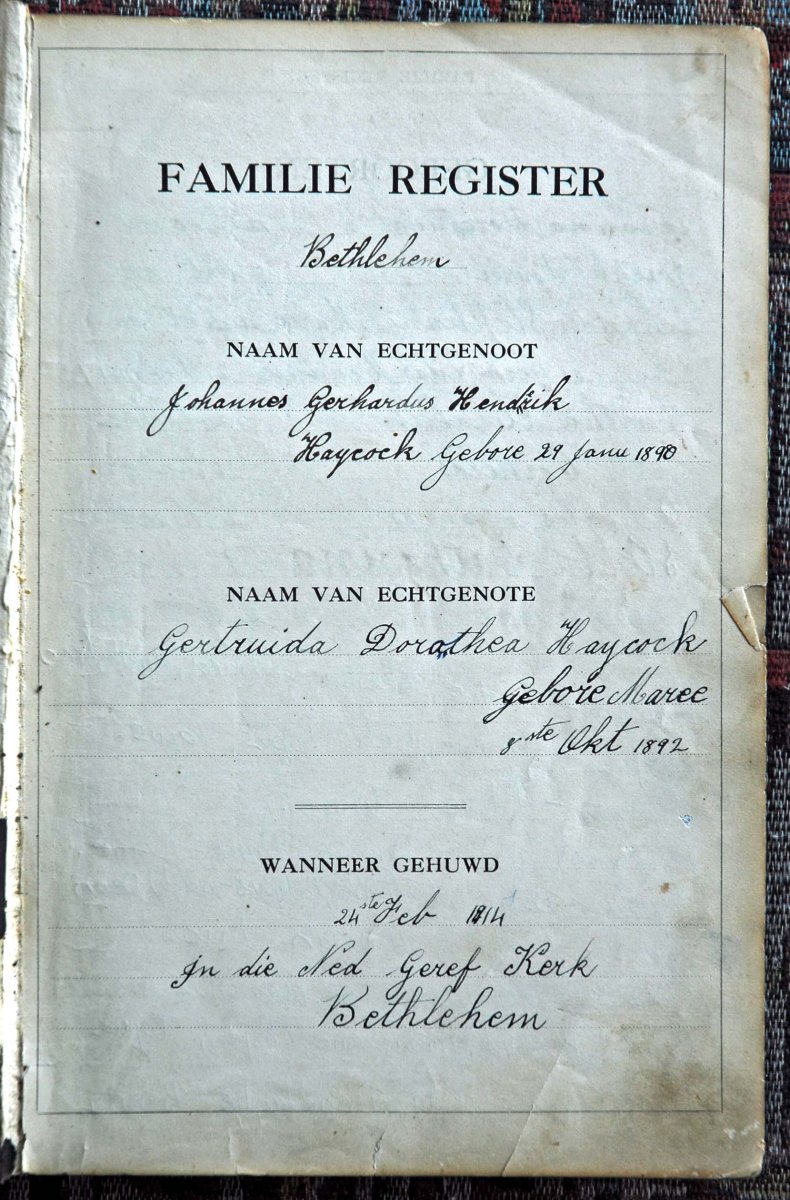 FAMILIE REGISTER
Bethlehem
NAAM VAN ECHTGENOOT
Johannes Gerhardus Hendrik
Haycock Gebore 29 Janu 1890
NAAM VAN ECHTGENOTE
Gertruida Dorathea Haycock
Gebore Maree
8ste Okt 1892
WANNEER GEHUWD
24ste Feb 1914
In die Ned Geref Kerk
Bethlehem